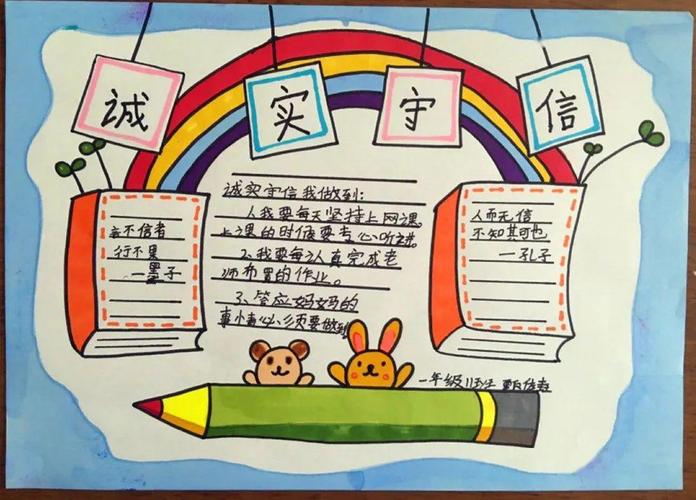 诚 实 守 信
言不信者
行不果
—墨子
诚实守信我做到:
1、我要每天坚持上网课。
上课的时候要专心听讲。
2、我要每认真完成老
师布置的作业。
3、答应妈妈的
事情必须要做到
人而无信
不知其可也
—孔子
一年级11班